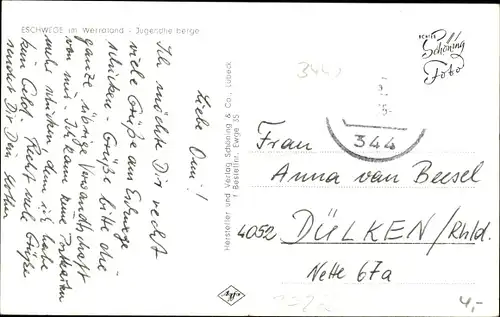 ESCHWEGE im Werraland - Jugendherberge
Liebe Omi!
Ich möchte Dir recht
viele Grüße aus Eschwege
schicken - Grüße bitte die
ganze übrige Verwandtschaft
von mir. Ich kann keine Postkarten
mehr schicken, denn ich habe
kein Geld. Recht viele Grüße
sendet Dir Dein
Hersteller und Verlag Schöning & Co., Lübeck
Bestellnr. Ewge 35
ECHTES
Schöning
Foto
344
344
Frau
Anna van Beesel
4052 DÜLKEN/Rhld.
Nette 67a
4,-